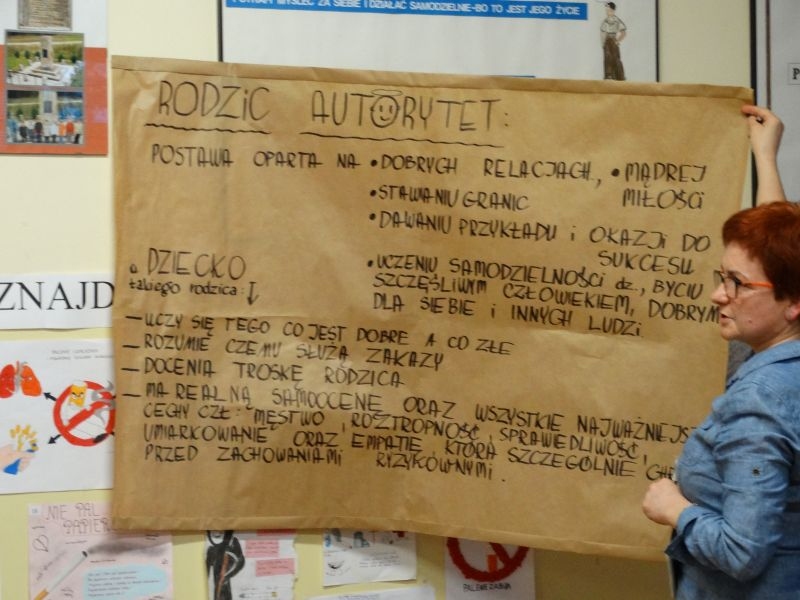 POTRAFI MYŚLEĆ ZA SIEBIE I DZIAŁAĆ SAMODZIELNIE-BO TO JEST JEGO ŻYCIE
RODZIC AUTORYTET:
POSTAWA OPARTA NA • DOBRYCH RELACJACH, • MĄDREJ MIŁOŚCI
• STAWANIU GRANIC
• DAWANIU PRZYKŁADU i OKAZJI DO
SUKCESU
• UCZENIU SAMODZIELNOŚCI dz., BYCIU
SZCZĘŚLIWYM CZŁOWIEKIEM, DOBRYM
DLA SIEBIE i INNYCH LUDZI.
a DZIECKO
takiego rodzica: ↓
— UCZY SIĘ TEGO CO JEST DOBRE A CO ZŁE
— ROZUMIE CZEMU SŁUŻĄ ZAKAZY
— DOCENIA TROSKĘ RODZICA
— MA REALNĄ SAMOOCENĘ ORAZ WSZYSTKIE
CECHY CZŁ: MĘSTWO, ROZTROPNOŚĆ, SPRAWIEDLIWOŚĆ,
UMIARKOWANIE ORAZ EMPATIĘ, KTÓRA SZCZEGÓLNIE
PRZED ZACHOWANIAMI RYZYKOWNYMI.
ZNAJD
NIE PAL
PALENIE ZABIJA